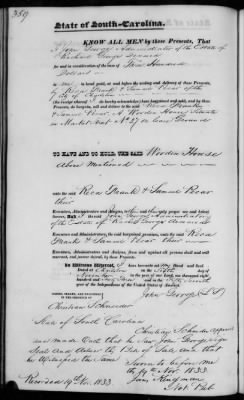 359
State of South-Carolina.
KNOW ALL MEN by these Presents, That
I John George Administrator of the Estate of
Richard George deceased
for and in consideration of the sum of Two Hundred
Dollars
to me in hand paid, at and before the sealing and delivery of these Presents,
by Rica Frank & Samuel Bear of the
City of
(the receipt whereof I do hereby acknowledge) have bargained and sold, and by these
Presents, do bargain, sell and deliver to the said Rica Frank
& Samuel Bear. A Wooden House Situate
in Market Street No 37 on Lease Ground
TO HAVE AND TO HOLD, THE SAID Wooden House
above Mentioned
unto the said Rica Frank & Samuel Bear
their
Executors, Administrators and Assigns, to
and their only proper use and behoof
forever. And I the said John George Administrator
of the Estate of Richard George deceased my
Executors and Administrators, the said bargained premises, unto the said Rica
Frank & Samuel Bear their
Executors, Administrators and Assigns, from and against all persons shall and will
warrant, and forever defend by these Presents.
In Witness Whereof, I have hereunto set my Hand and Seal
Dated at Charleston on the
day of
in the year of our Lord, one thousand eight
hundred and thirty three and in the fifty
year of the Independence of the United States of America.
SIGNED, SEALED, AND DELIVERED
IN THE PRESENCE OF
John George (L.S)
Christian Schneider
State of South Carolina
Christian Schneider appeared
and made Oath that he saw John George sign
Seal and deliver the Bill of Sale and that
he Witnessed the same
Sworn to before me
the 19th Nov. 1833.
Recorded 19th Nov. 1833.
Not. Pub.